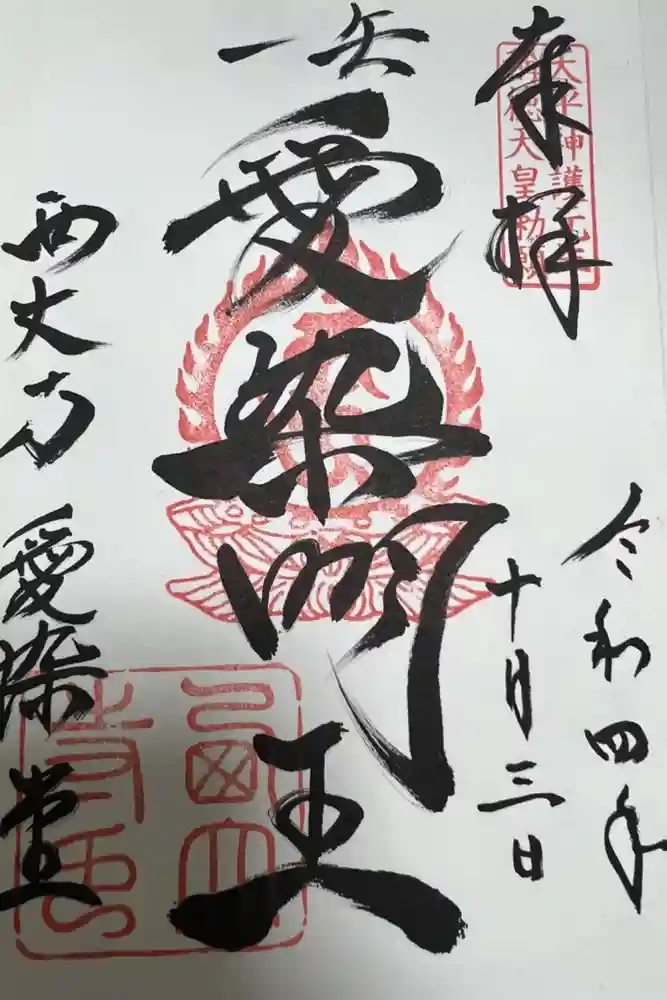 奉拝
天平神護元年
称徳天皇勅願
令和四年
十月三日
愛染明王
西大寺 愛染堂